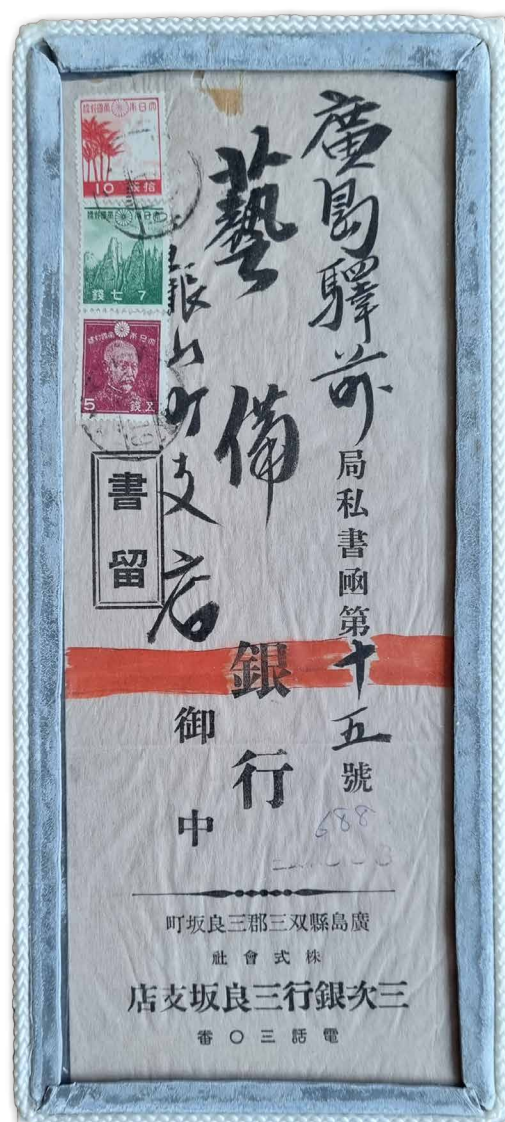 廣島驛前局私書凾第十五號
藝備銀行
銀山町支店御中
書留
大日本帝國郵便
10 拾錢
大日本帝國郵便
7 七錢
大日本帝國郵便
5 五錢
688
廣島縣双三郡三良坂町
株式會社
三次銀行三良坂支店
電話三〇番